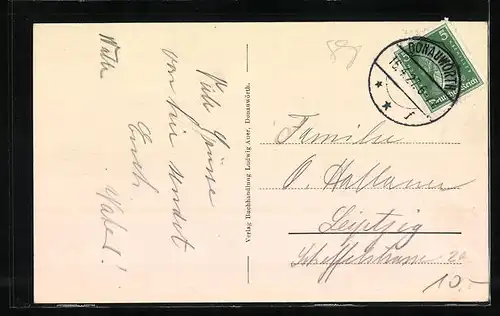 Viele Grüsse
von hier sendet
Euch
Verlag Buchhandlung Ludwig Auer, Donauwörth.
DONAUWÖRTH
5
Familie
O. Hallauer
Leipzig
Scheffelstrasse 20
10.-